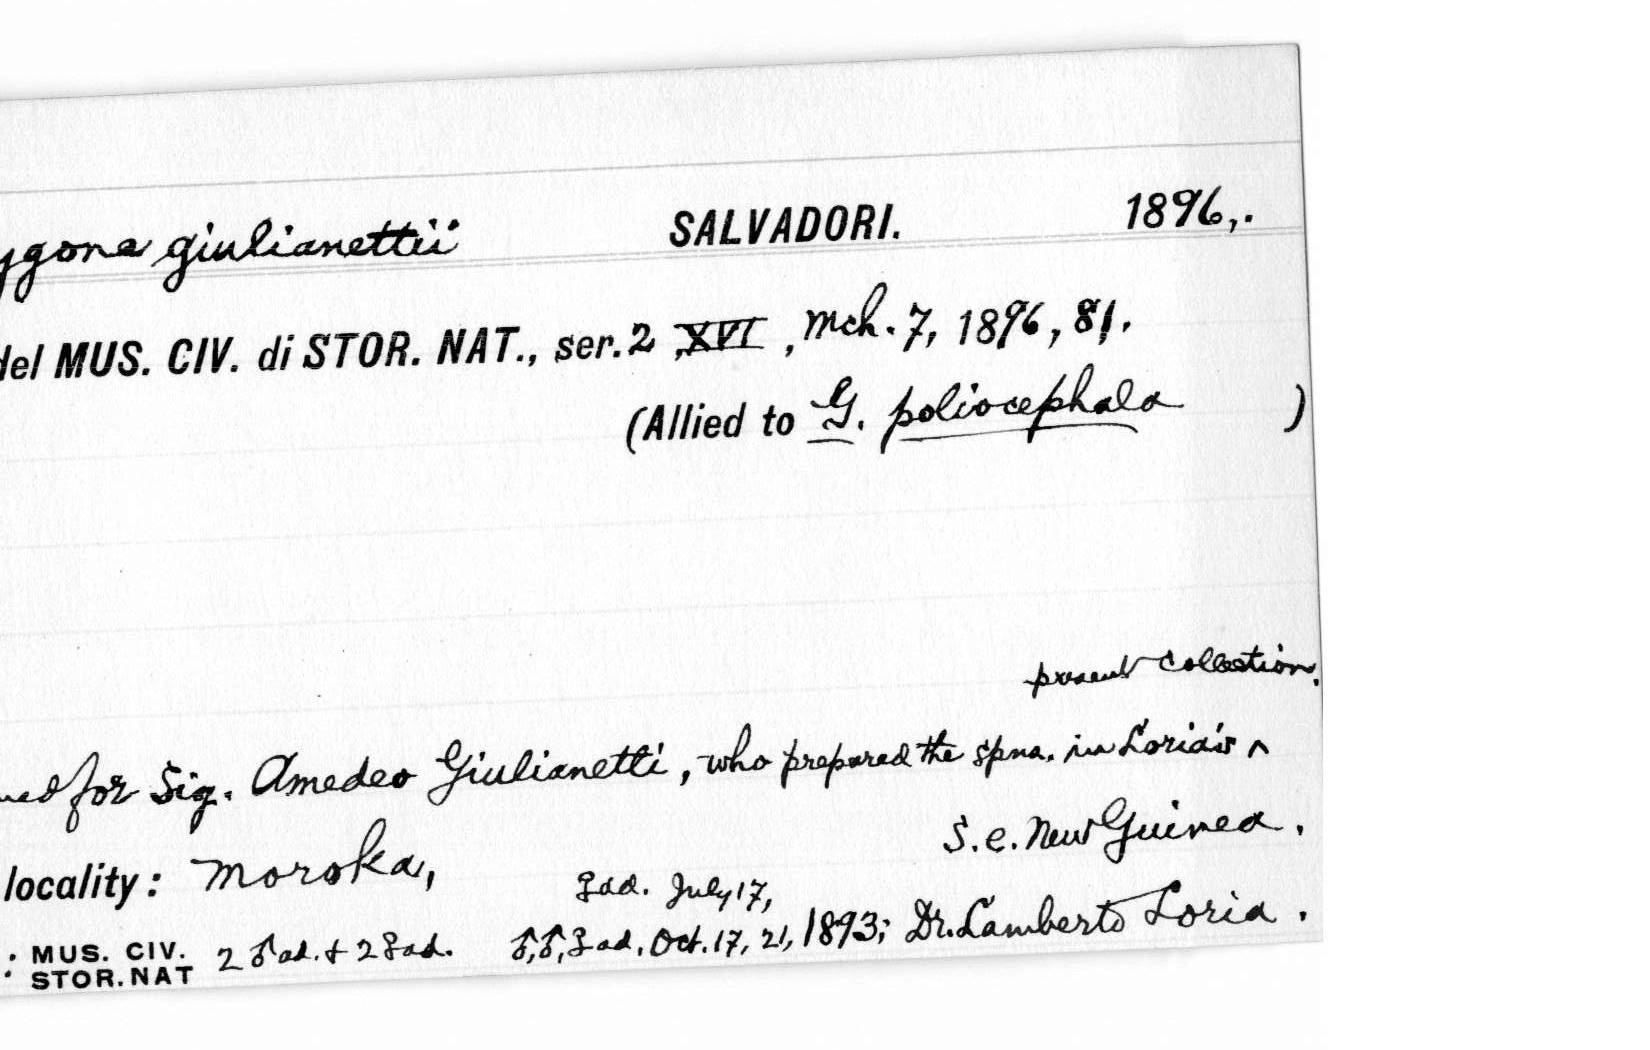 ygone giulianettii SALVADORI. 1896,.
del MUS. CIV. di STOR. NAT., ser. 2, XVI, Mch. 7, 1896, 81.
(Allied to G. poliocephala )
present collection.
med for Sig. Amedeo Giulianetti, who prepared the spns. in Loria's ^
S.e. New Guinea.
locality: Moroka,
♀ad. July 17,
: MUS. CIV. STOR. NAT 2 ♂ ad. + 2 ♀ ad. ♂,♂,♀ ad. Oct. 17, 21, 1893; Dr. Lamberto Loria.